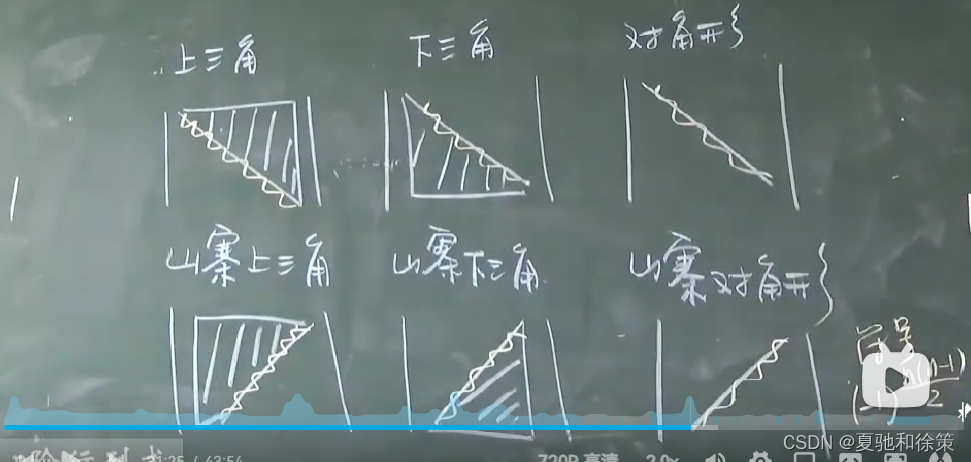 上三角
下三角
对角形
山寨上三角
山寨下三角
山寨对角形
符号
n(n-1)
(-1) 2
31:25 / 43:54
720P 高清
2.0x
CSDN @夏驰和徐策